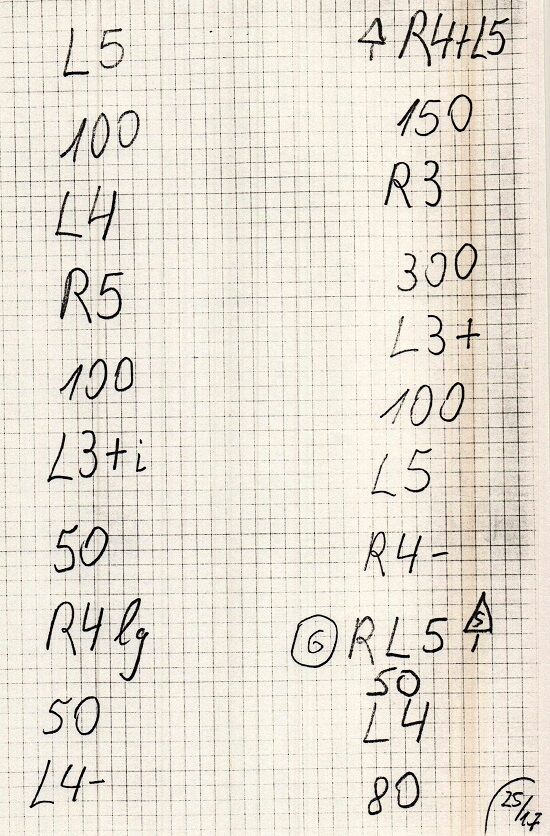 L5
100
L4
R5
100
L3+i
50
R4 lg
50
L4-
R4+L5
150
R3
300
L3+
100
L5
R4-
6 RL5 5
50
L4
80
25/17